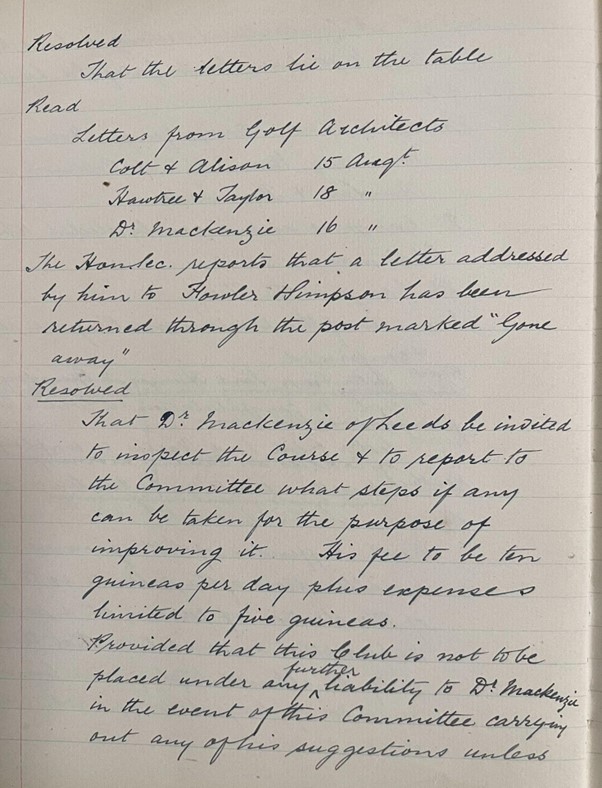 Resolved
That the letters lie on the table
Read
Letters from Golf Architects
Colt & Alison 15 Augt.
Hawtree & Taylor 18 "
Dr. Mackenzie 16 "
The Hon. Sec. reports that a letter addressed
by him to Fowler Simpson has been
returned through the post marked "Gone
away"
Resolved
That Dr. Mackenzie of Leeds be invited
to inspect the Course & to report to
the Committee what steps if any
can be taken for the purpose of
improving it. His fee to be ten
guineas per day plus expenses
limited to five guineas.
Provided that this Club is not to be
placed under any further liability to Dr. Mackenzie
in the event of this Committee carrying
out any of his suggestions unless